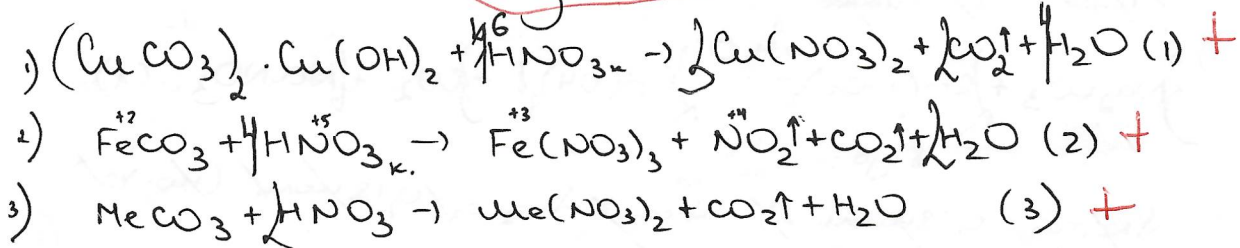 1) (CuCO₃)₂·Cu(OH)₂ + 6HNO₃ₖ → 3Cu(NO₃)₂ + 2CO₂↑ + 4H₂O (1) +
2) Fe⁺²CO₃ + 4HN⁺⁵O₃ к. → Fe⁺³(NO₃)₃ + N⁺⁴O₂↑ + CO₂↑ + 2H₂O (2) +
3) MeCO₃ + 2HNO₃ → Me(NO₃)₂ + CO₂↑ + H₂O (3) +